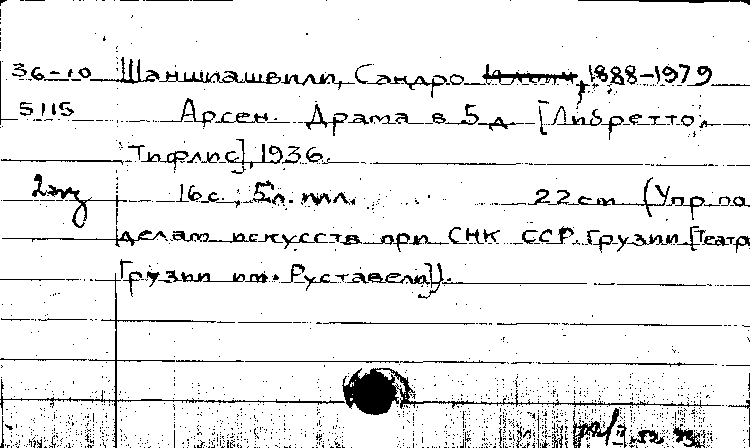 36-10 Шаншиашвили, Сандро 1888-1979
5115 Арсен. Драма в 5 д. [Либретто.
Тифлис], 1936.
2 экз 16 с.; 5 л. илл. 22 cm (Упр. по
делам искусств при СНК ССР Грузии [Театр
Грузии им. Руставели]).